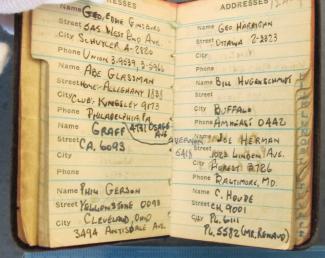 ADDRESSES
Name GEO, EDDIE GINSBURG
Street 545 WEST END AVE.
City SCHUYLER 4-2820
Phone UNION 3-9639, 3-5966
Name ABE GLASSMAN
Street HOME- ALLEGHANY 1831
City CLUB- KINGSLEY 9173
Phone PHILADELPHIA PA.
Name GRAFF 4731 OSAGE AVE
Street CA. 6093
City
Phone
Name PHIL GERSON
Street YELLOWSTONE 0098
City CLEVELAND, OHIO
3494 AVE
ADDRESSES
Name GEO HARRIGAN
Street OTTAWA 2-2823
City
Phone
Name BILL
Street
City BUFFALO
Phone AMHERST 0442
Name JOE HERMAN
Street LINDEN AVE.
City FOREST 2726
Phone BALTIMORE, MD.
Name C. HOUDE
Street CH. 9001
City PL. 6111
PL. 5582 (MR. RENAUD)